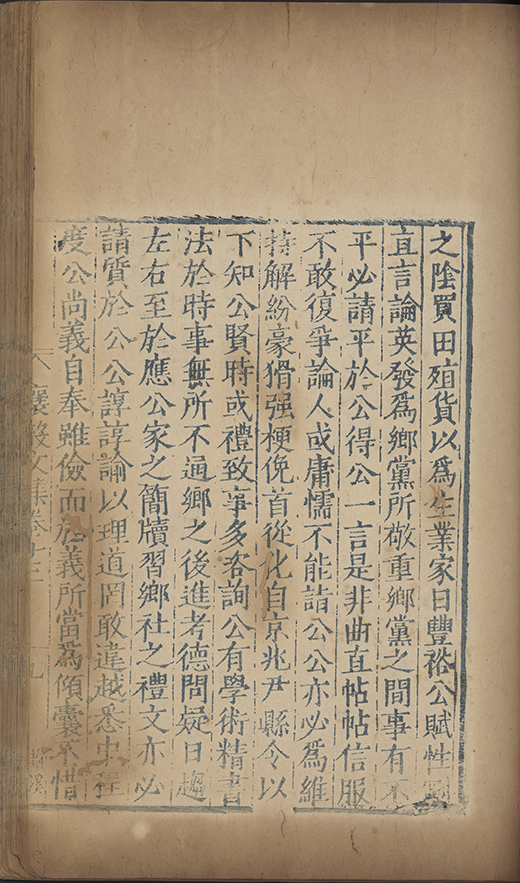 之陰買田殖貨以爲生業家日豐裕公賦性剛
直言論英發爲鄉黨所敬重鄉黨之間事有不
平必請平於公得公一言是非曲直帖帖信服
不敢復爭論人或庸懦不能詰公公亦必爲維
持解紛豪猾强梗俛首從化自京兆尹縣令以
下知公賢時或禮致事多咨詢公有學術精書
法於時事無所不通鄉之後進考德問疑日趨
左右至於應公家之簡牘習鄉社之禮文亦必
請質於公公諄諄論以理道罔敢違越悉中程
度公尚義自奉雖儉而於義所當爲傾囊不惜
襄毅文集卷十三 九